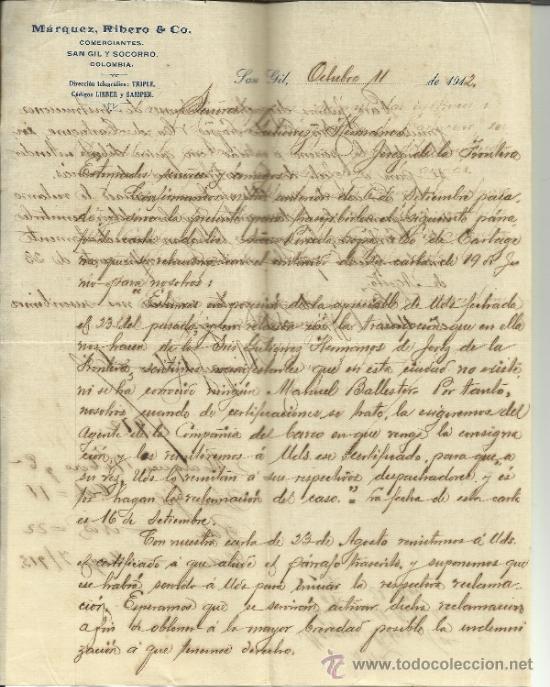 Márquez, Ribero & Co.
COMERCIANTES.
SAN GIL Y SOCORRO.
COLOMBIA.
Dirección telegráfica: TRIPLE.
Códigos LIEBER y SAMPER.
San Gil, Octubre 11 de 1912.
Señores
Gutiérrez Hermanos
Jerez de la Frontera
Estimados señores y amigos:
Confirmamos anterior de 6 de Setiembre pasa
do la presente para transcribirles el siguiente párra
fo de carta de los Sres Pineda López & Co de Cartage
na que se relaciona con el de su carta de 19 de Ju
nio para nosotros:
"Estamos en posesión de la apreciable de Uds fechada
el 23 del pasado, y en relación con la trascripción que en ella
nos hacen de los Sres Gutiérrez Hermanos de Jerez de la
Frontera, sentimos manifestarles que en esta ciudad no existe
ni se ha conocido ningún Manuel Ballester. Por tanto,
nosotros cuando de certificaciones se trate, la exigiremos del
Agente de la Compañía del barco en que venga la consigna
ción, y les remitiremos á Uds ese certificado, para que, á
su vez, Uds lo remitan á sus respectivos despachadores y és
tos hagan la reclamación del caso." La fecha de esta carta
es 16 de Setiembre.
Con nuestra carta de 23 de Agosto remitimos á Uds
el certificado á que alude el párrafo trascrito, y suponemos que
ese habrá servido á Uds para iniciar la respectiva reclama
ción. Esperamos que se servirán activar dicha reclamación
á fin de obtener á la mayor brevedad posible la indemni
zación á que tenemos derecho.
todocoleccion
www.todocoleccion.net